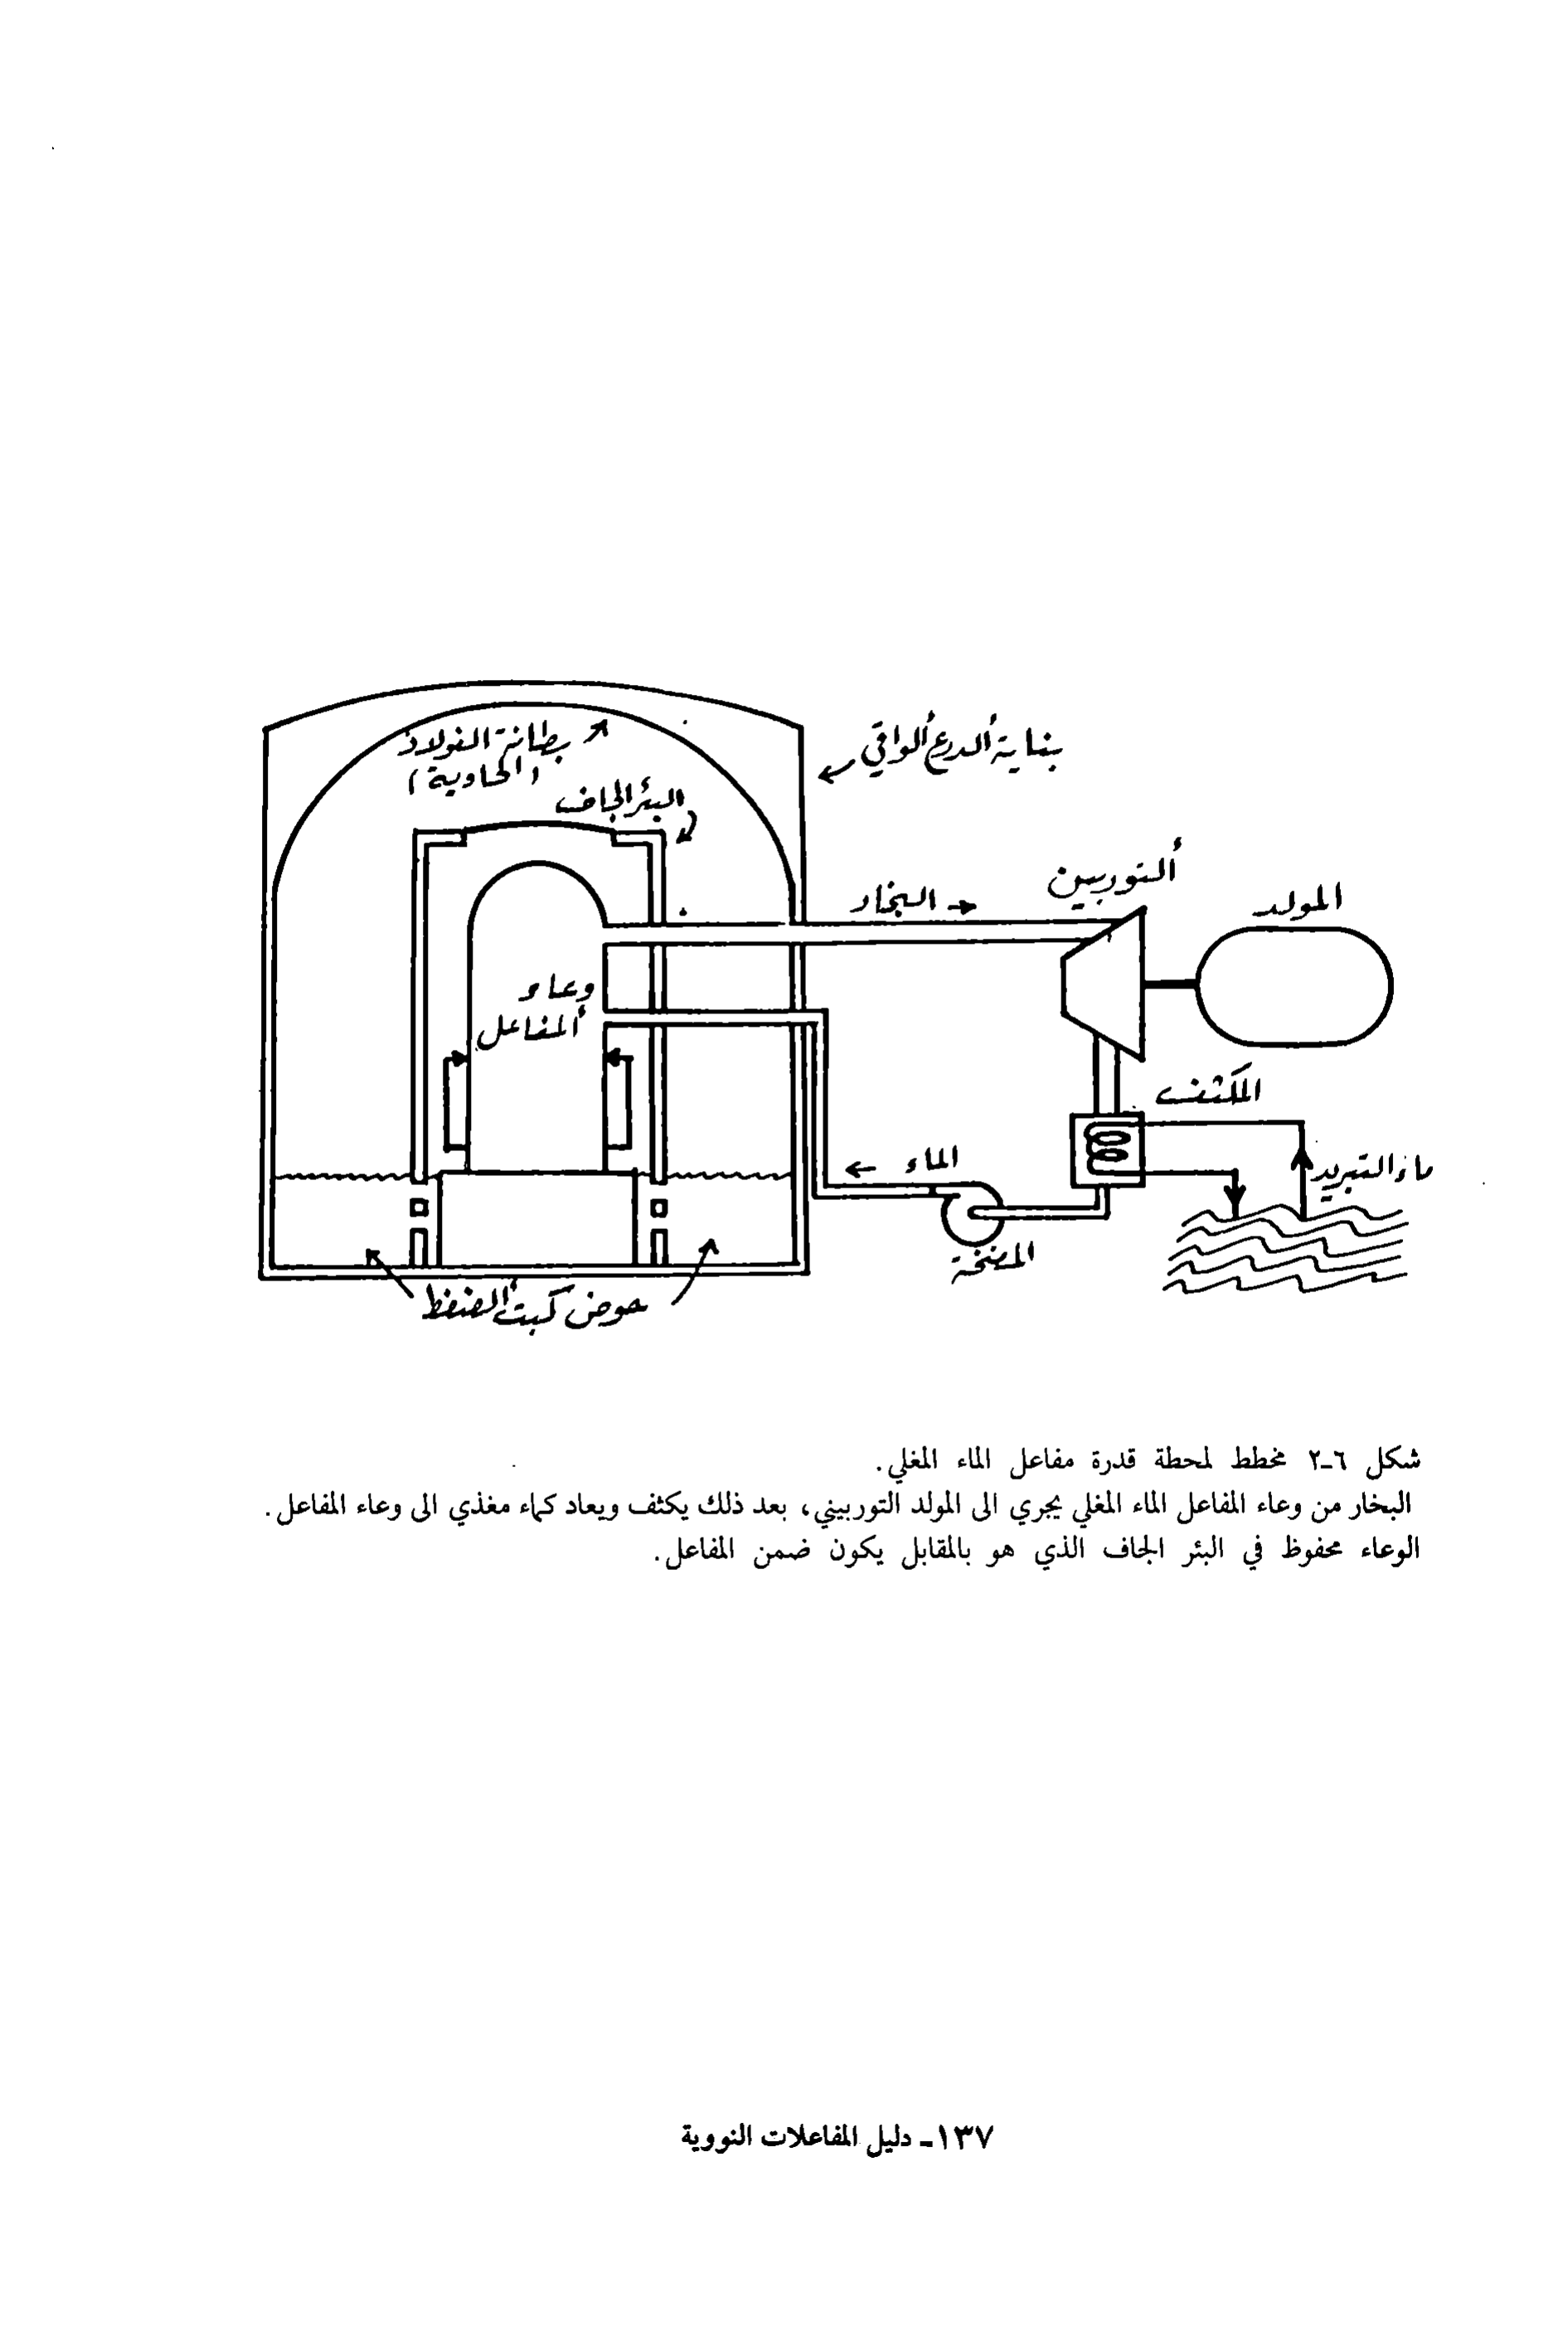 بطانة الفولاذ
(الحاوية)
بناية ألدرع ألواقي
البئر الجاف
ألتوربين
البخار
المولد
وعاء
ألمفاعل
المكثف
الماء
ماء التبريد
المضخة
حوض كبت ألضغط
شكل ٦-٢ مخطط لمحطة قدرة مفاعل الماء المغلي.
البخار من وعاء المفاعل الماء المغلي يجري الى المولد التوربيني، بعد ذلك يكثف ويعاد كماء مغذي الى وعاء المفاعل.
الوعاء محفوظ في البئر الجاف الذي هو بالمقابل يكون ضمن المفاعل.
١٣٧- دليل المفاعلات النووية